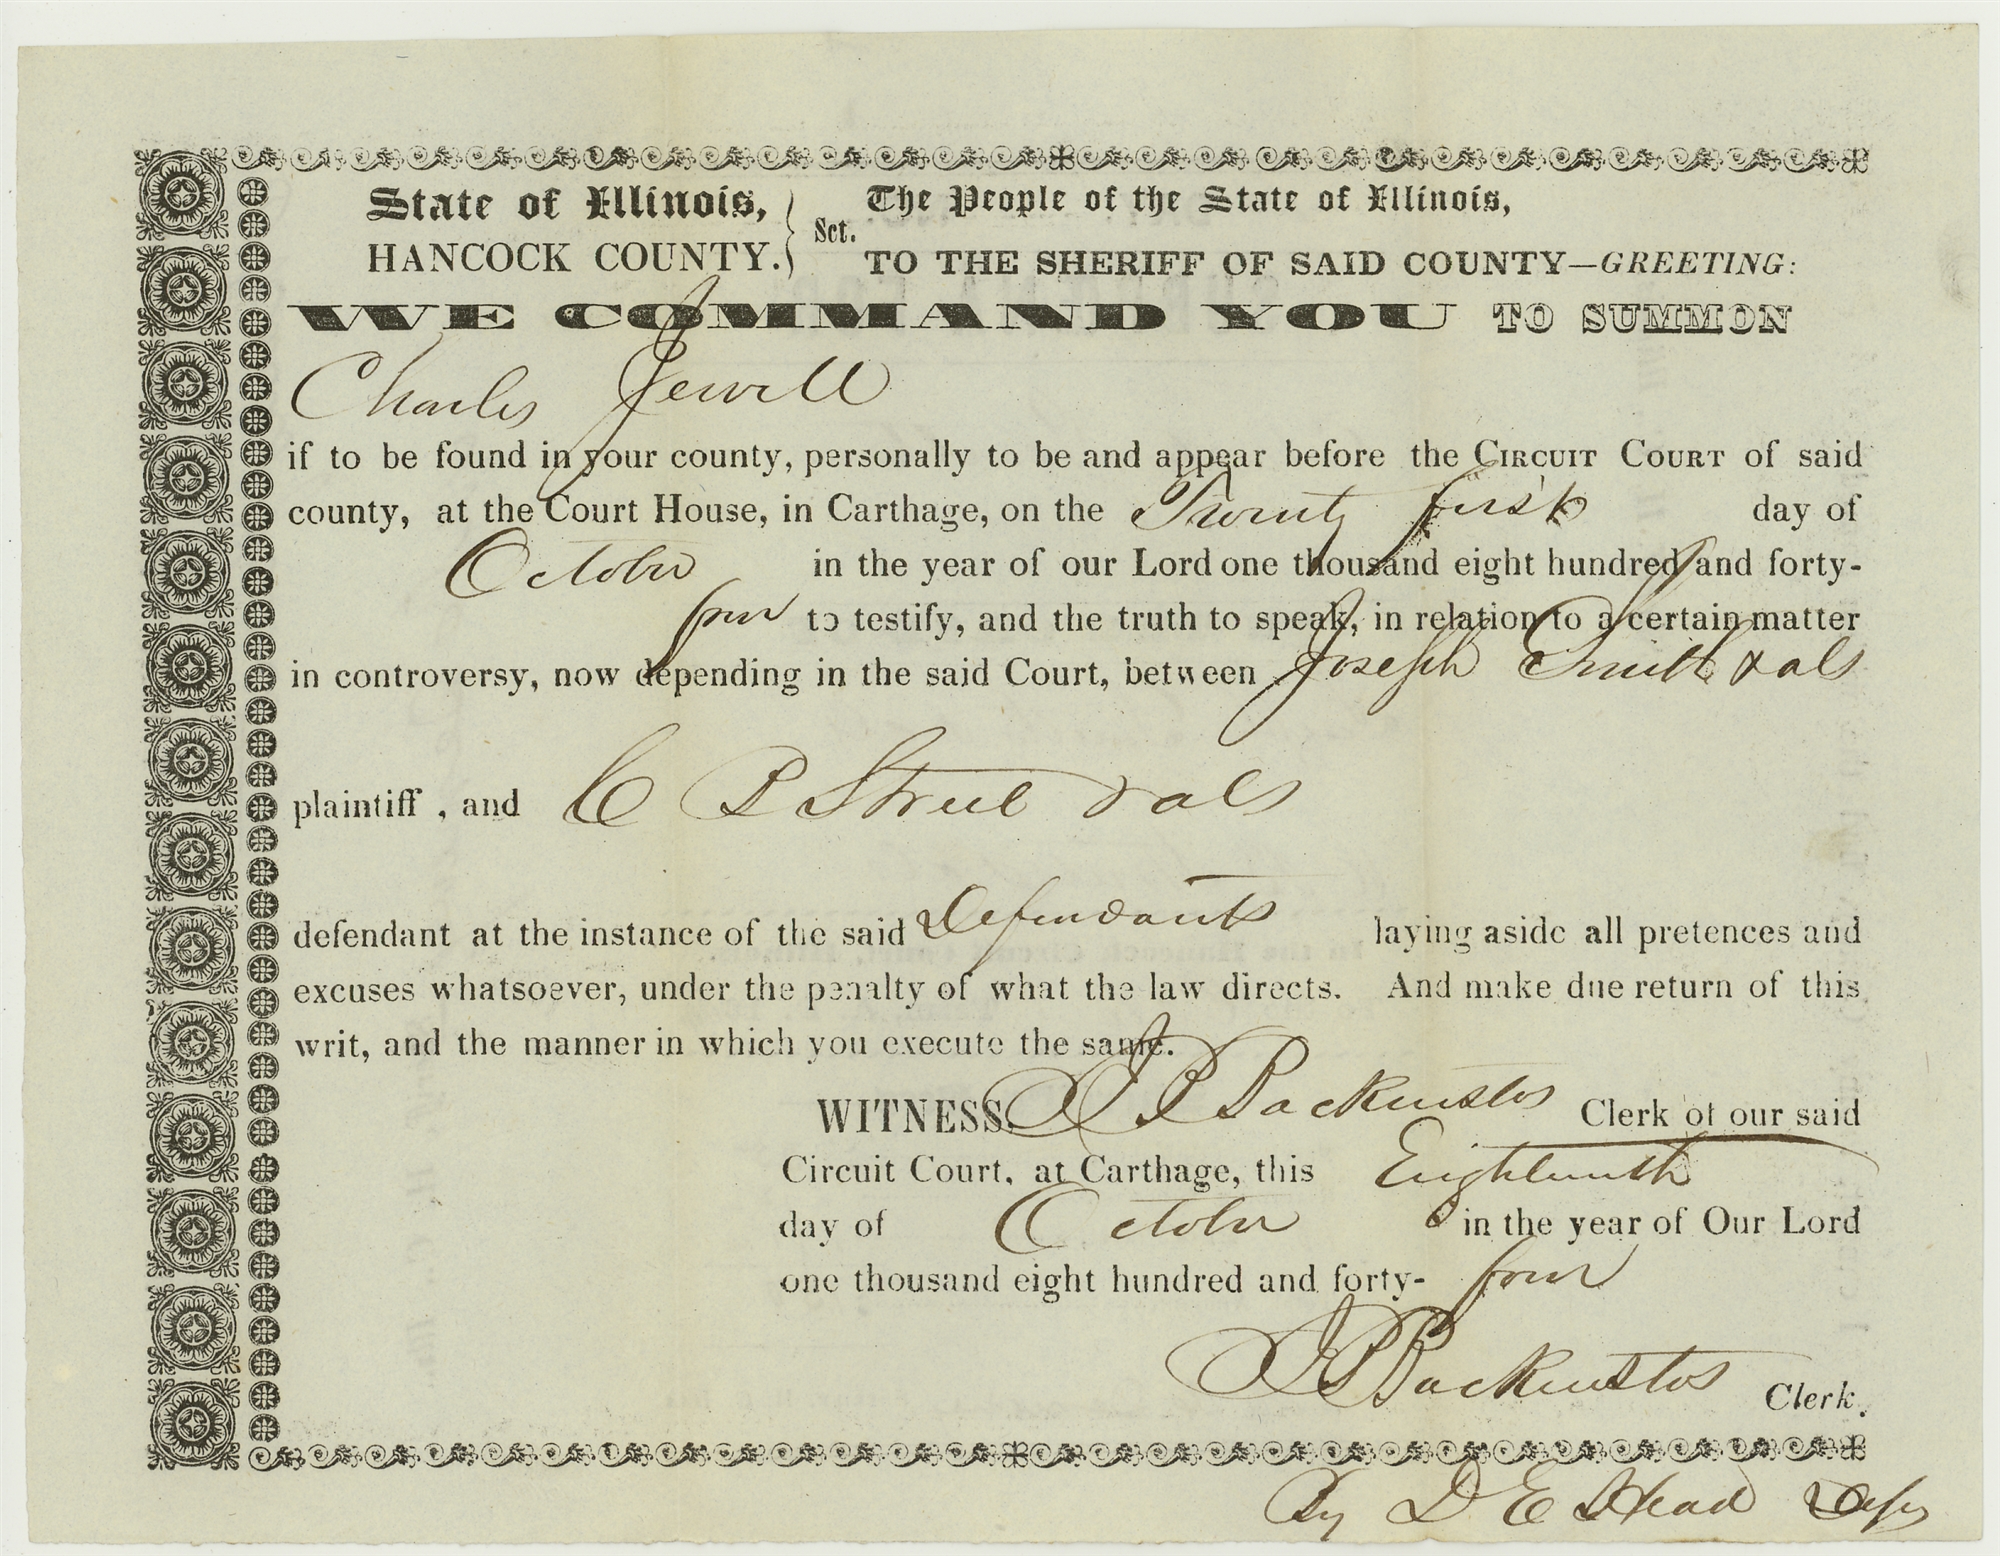 State of Illinois, } Sct. The People of the State of Illinois,
HANCOCK COUNTY. TO THE SHERIFF OF SAID COUNTY—GREETING:
WE COMMAND YOU TO SUMMON
Charles Jewell
if to be found in your county, personally to be and appear before the CIRCUIT COURT of said
county, at the Court House, in Carthage, on the Twenty first day of
October in the year of our Lord one thousand eight hundred and forty-
four to testify, and the truth to speak, in relation to a certain matter
in controversy, now depending in the said Court, between Joseph Smith & als
plaintiff, and C P Street & als
defendant at the instance of the said Defendants laying aside all pretences and
excuses whatsoever, under the penalty of what the law directs. And make due return of this
writ, and the manner in which you execute the same.
WITNESS, J B Backenstos Clerk of our said
Circuit Court, at Carthage, this Eighteenth
day of October in the year of Our Lord
one thousand eight hundred and forty- four
J B Backenstos Clerk.
By D E Head Depy